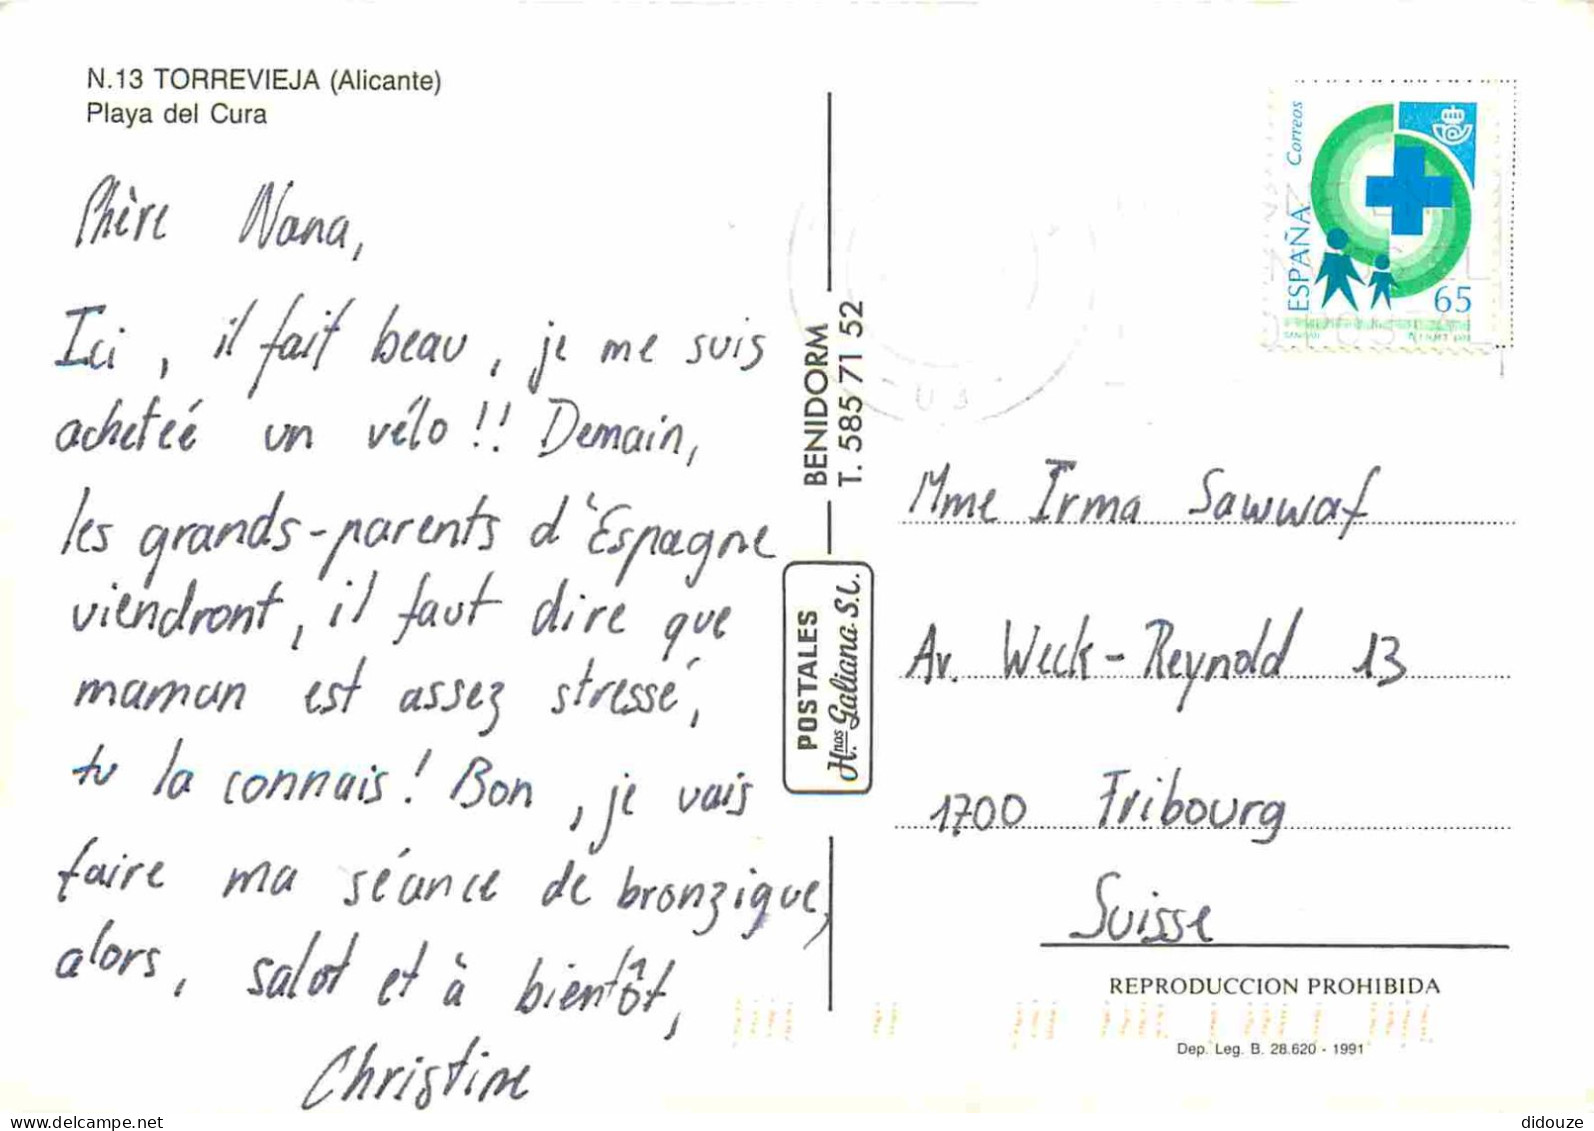 N.13 TORREVIEJA (Alicante)
Playa del Cura
Chère Nana,
Ici, il fait beau, je me suis
acheteé un vélo!! Demain,
les grands-parents d'Espagne
viendront, il faut dire que
maman est assez stressé,
tu la connais! Bon, je vais
faire ma séance de bronzigue,
alors, salot et à bientôt,
Christine
BENIDORM
T. 585 71 52
POSTALES
H.nos Galiana S.L.
ESPAÑA Correos
65
Mme Irma Sawwaf
Av. Weck-Reynold 13
1700 Fribourg
Suisse
REPRODUCCION PROHIBIDA
Dep. Leg. B. 28.620 - 1991
www.delcampe.net
didouze